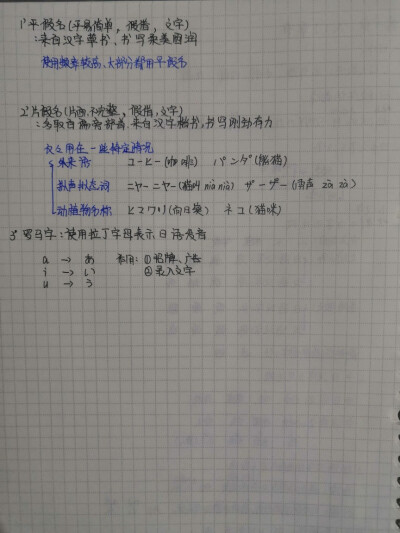 1° 平假名(平易简单, 假借, 文字)
: 来自汉字草书、书写柔美圆润
使用频率较高、大部分都用平假名
2° 片假名(片面、不完整, 假借, 文字)
: 多取自偏旁部首、来自汉字楷书,书写刚劲有力
用在一些特定情况
外来语 コーヒー(咖啡) パンダ(熊猫)
拟声拟态词 ニャーニャー(猫叫 niā niā) ザーザー(雨声 zā zā)
动植物名称 ヒマワリ(向日葵) ネコ(猫咪)
3° 罗马字: 使用拉丁字母表示日语发音
a → あ 利用: ①招牌、广告
i → い ②录入文字
u → う